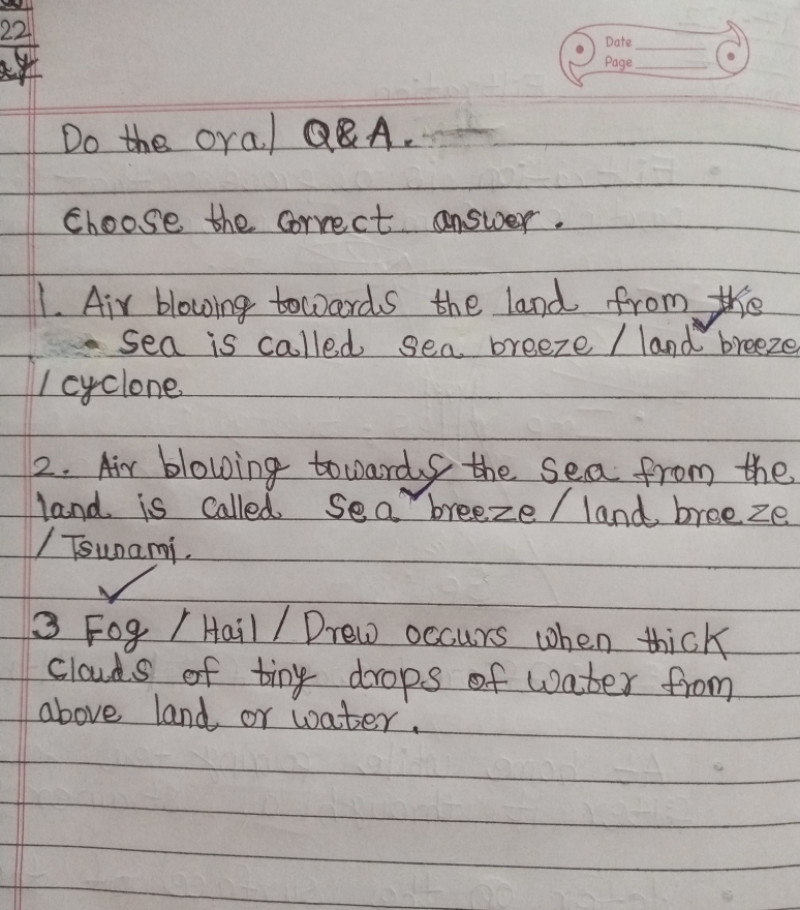 22
Date
Page
Do the oral Q&A.
Choose the correct answer.
1. Air blowing towards the land from the
sea is called sea breeze / land breeze
/ cyclone
2. Air blowing towards the sea from the
land is called sea breeze / land breeze
/ Tsunami.
3 Fog / Hail / Drew occurs when thick
clouds of tiny drops of water from
above land or water.